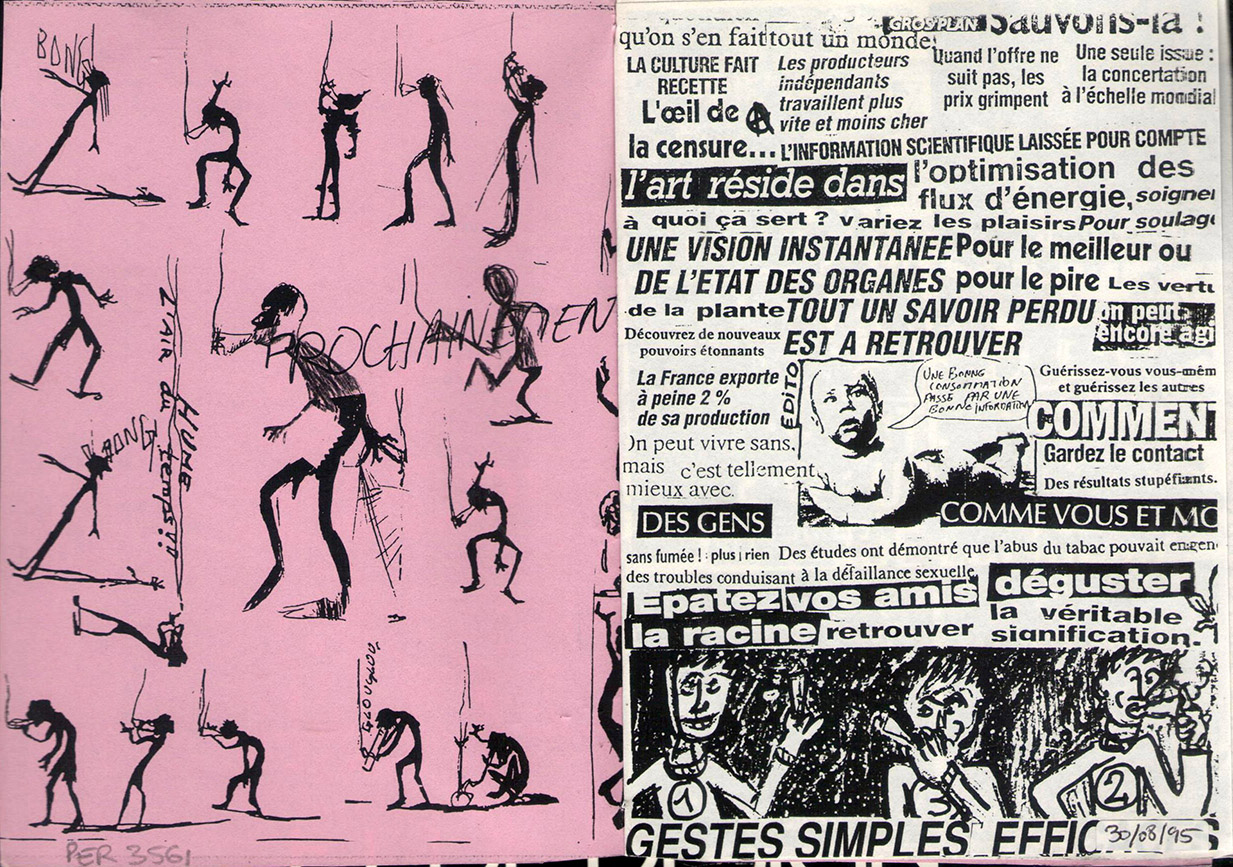 BONG
PROCHAINEMEN
L'AIR du temps!!
HUME
BONG
GLOUGLOU
PER 3561
GROS PLAN Sauvons-la !
qu'on s'en fait tout un monde.
LA CULTURE FAIT
RECETTE
Les producteurs
indépendants
travaillent plus
vite et moins cher
Quand l'offre ne
suit pas, les
prix grimpent
Une seule issue :
la concertation
à l'échelle mondial
L'œil de
la censure...
L'INFORMATION SCIENTIFIQUE LAISSÉE POUR COMPTE
l'art réside dans
l'optimisation des
flux d'énergie,
soigner
à quoi ça sert ? variez les plaisirs Pour soulage
UNE VISION INSTANTANEE
DE L'ETAT DES ORGANES
Pour le meilleur ou
pour le pire
Les vertu
de la plante
TOUT UN SAVOIR PERDU
EST A RETROUVER
on peut
encore agi
Découvrez de nouveaux
pouvoirs étonnants
La France exporte
à peine 2 %
de sa production
EDITO
UNE BONNE
CONSOMMATION
PASSE PAR UNE
BONNE INFORMATION
Guérissez-vous vous-mêm
et guérissez les autres
COMMENT
Gardez le contact
Des résultats stupéfiants.
On peut vivre sans,
mais c'est tellement
mieux avec.
DES GENS
COMME VOUS ET MO
sans fumée ! plus rien
Des études ont démontré que l'abus du tabac pouvait engen
des troubles conduisant à la défaillance sexuelle
Epatez vos amis
déguster
la racine
retrouver
la véritable
signification.
1
3
2
GESTES SIMPLES EFFIC S
30/08/95